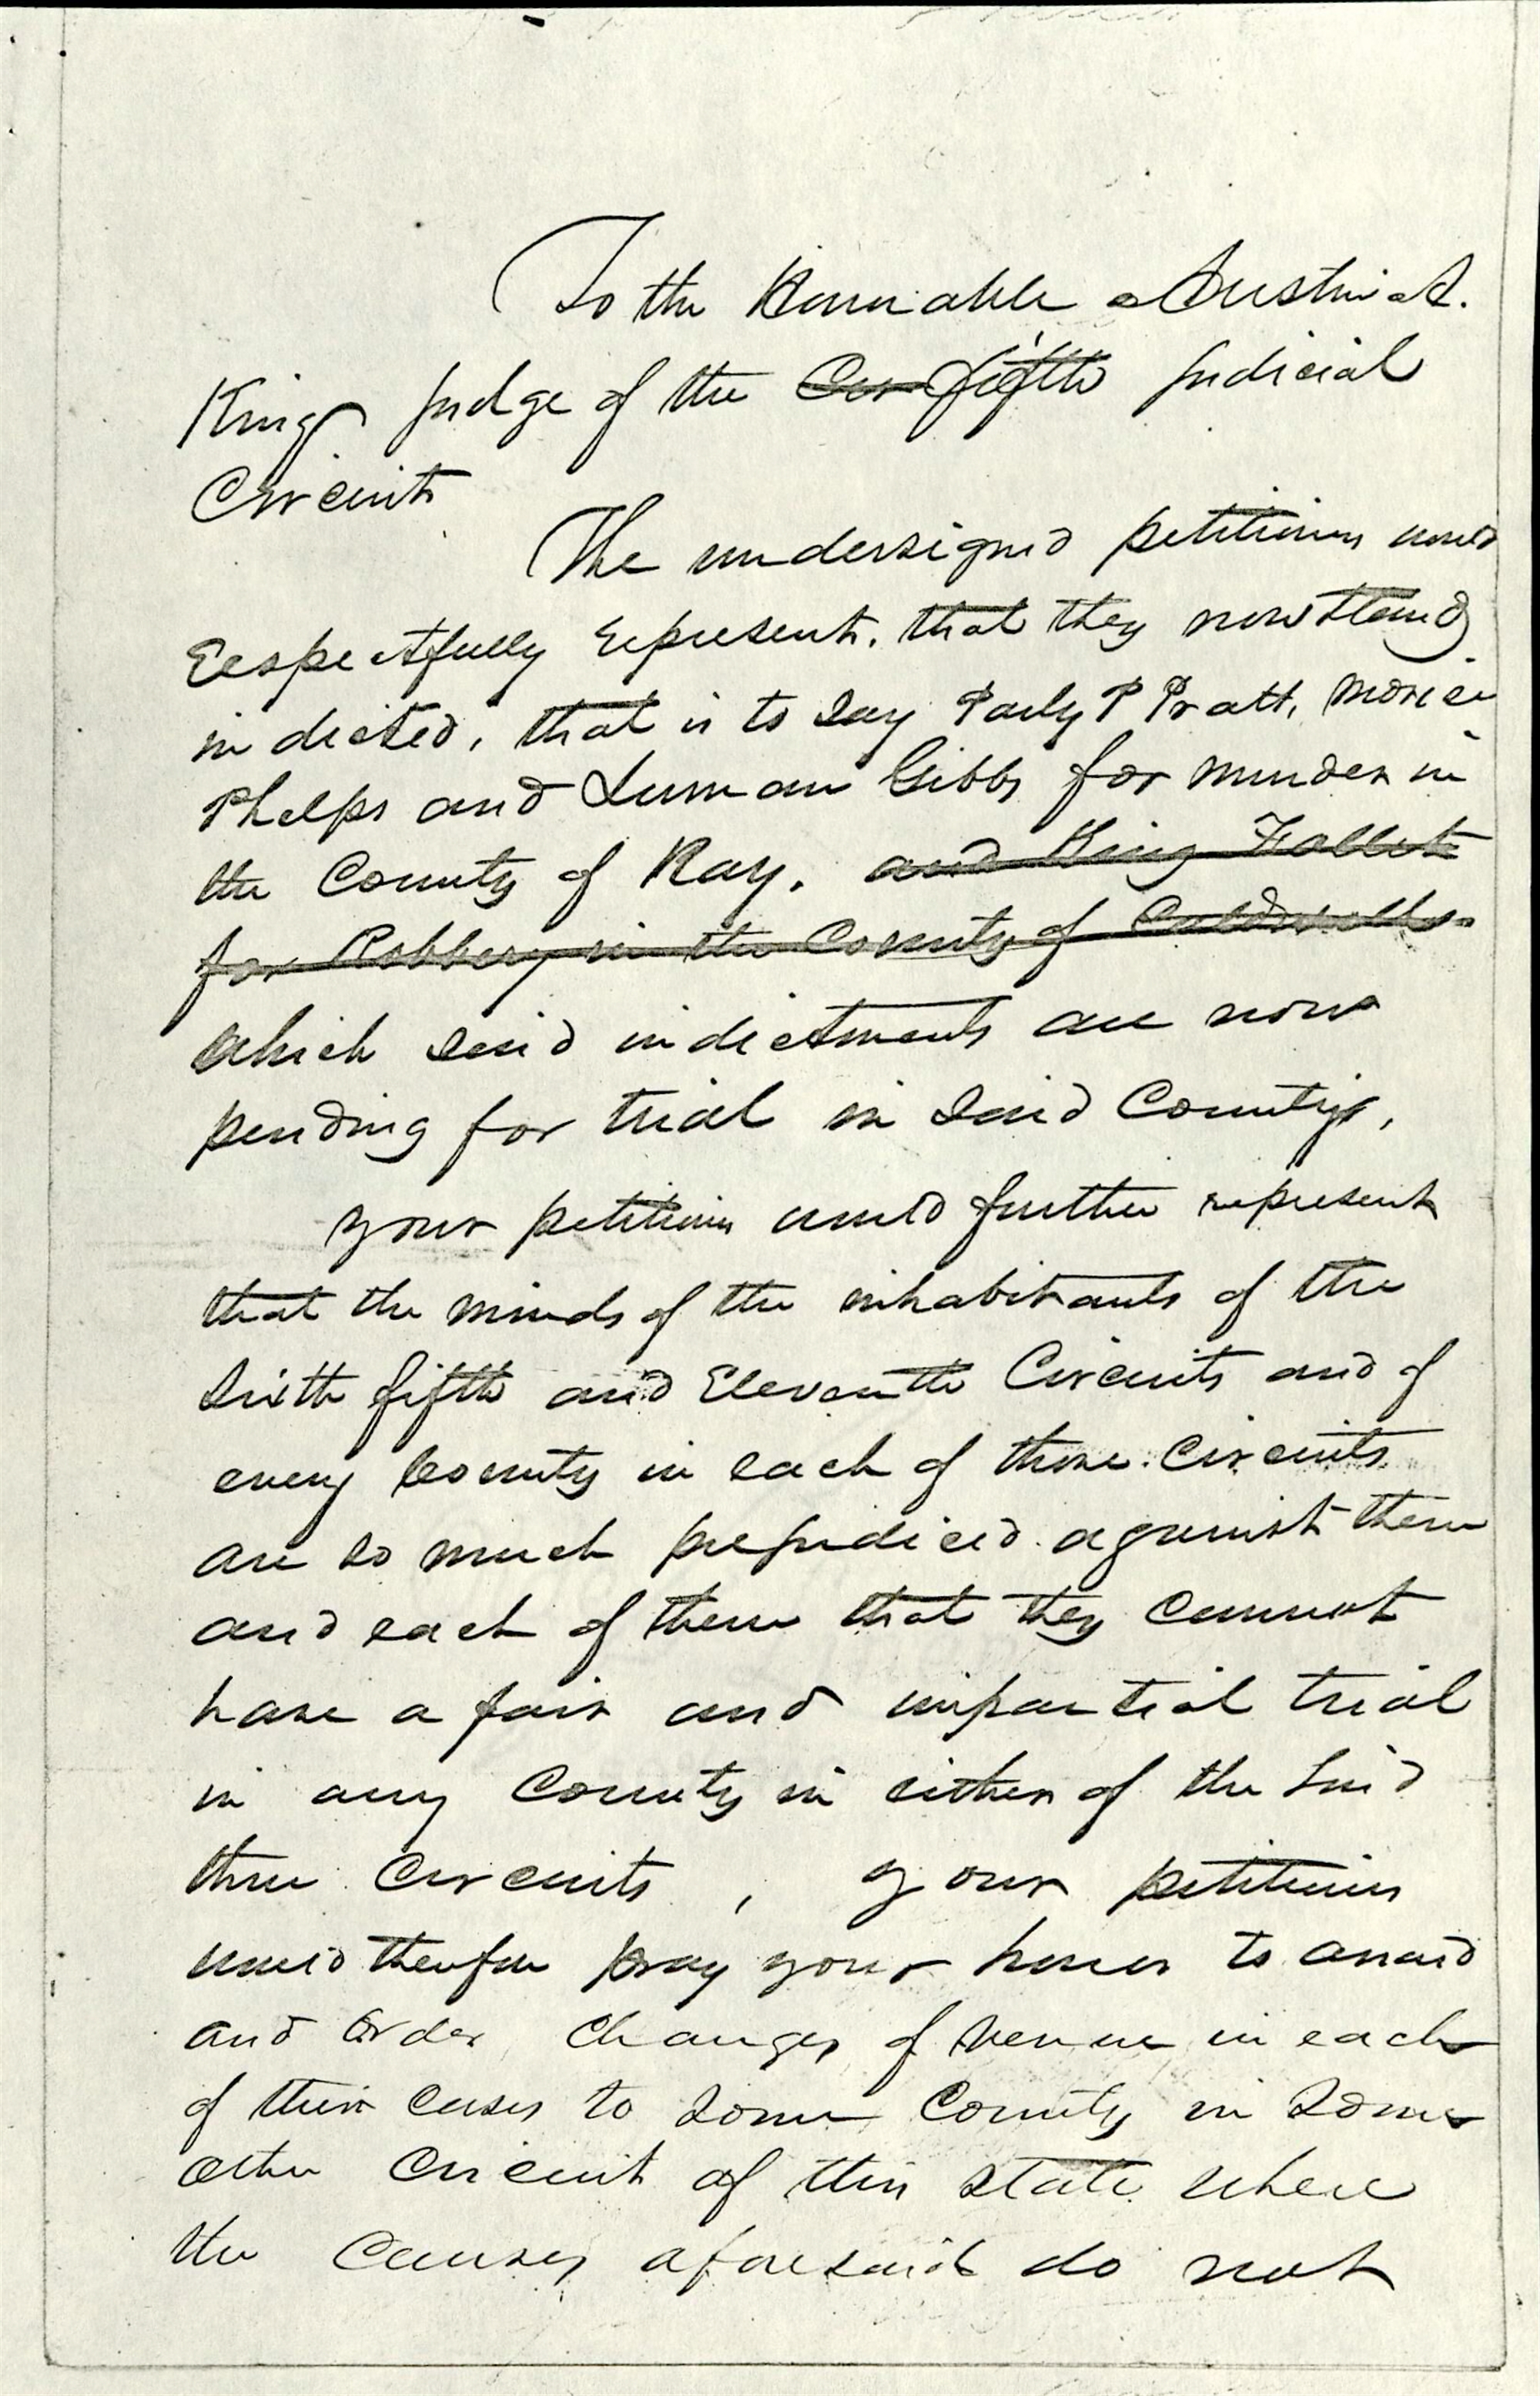 To the Honorable Austin A.
King Judge of the Cir fifth Judicial
Circuit
The undersigned petitioners would
Respectfully Represent. that they now stand
indicted, that is to say Parly P Pratt, Morris
Phelps and Luman Gibbs for murder in
the County of Ray. and King Follett
for Robbery in the County of Caldwell
which said indictments are now
pending for trial in said County,
your petitioners would further represent
that the minds of the inhabitants of the
Sixth fifth and Eleventh Circuits and of
every County in each of those Circuits
are so much prejudiced against them
and each of them that they cannot
have a fair and impartial trial
in any County in either of the said
three Circuits, your petitioners
would therefore pray your honor to award
and order changes of venue in each
of their cases to some County in some
other Circuit of this state where
the causes aforesaid do not